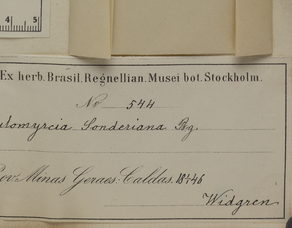 4 5
Ex herb. Brasil. Regnellian. Musei bot. Stockholm.
No 544
ulomyrcia Sonderiana Bg.
rov. Minas Geraes: Caldas. 1846
Widgren